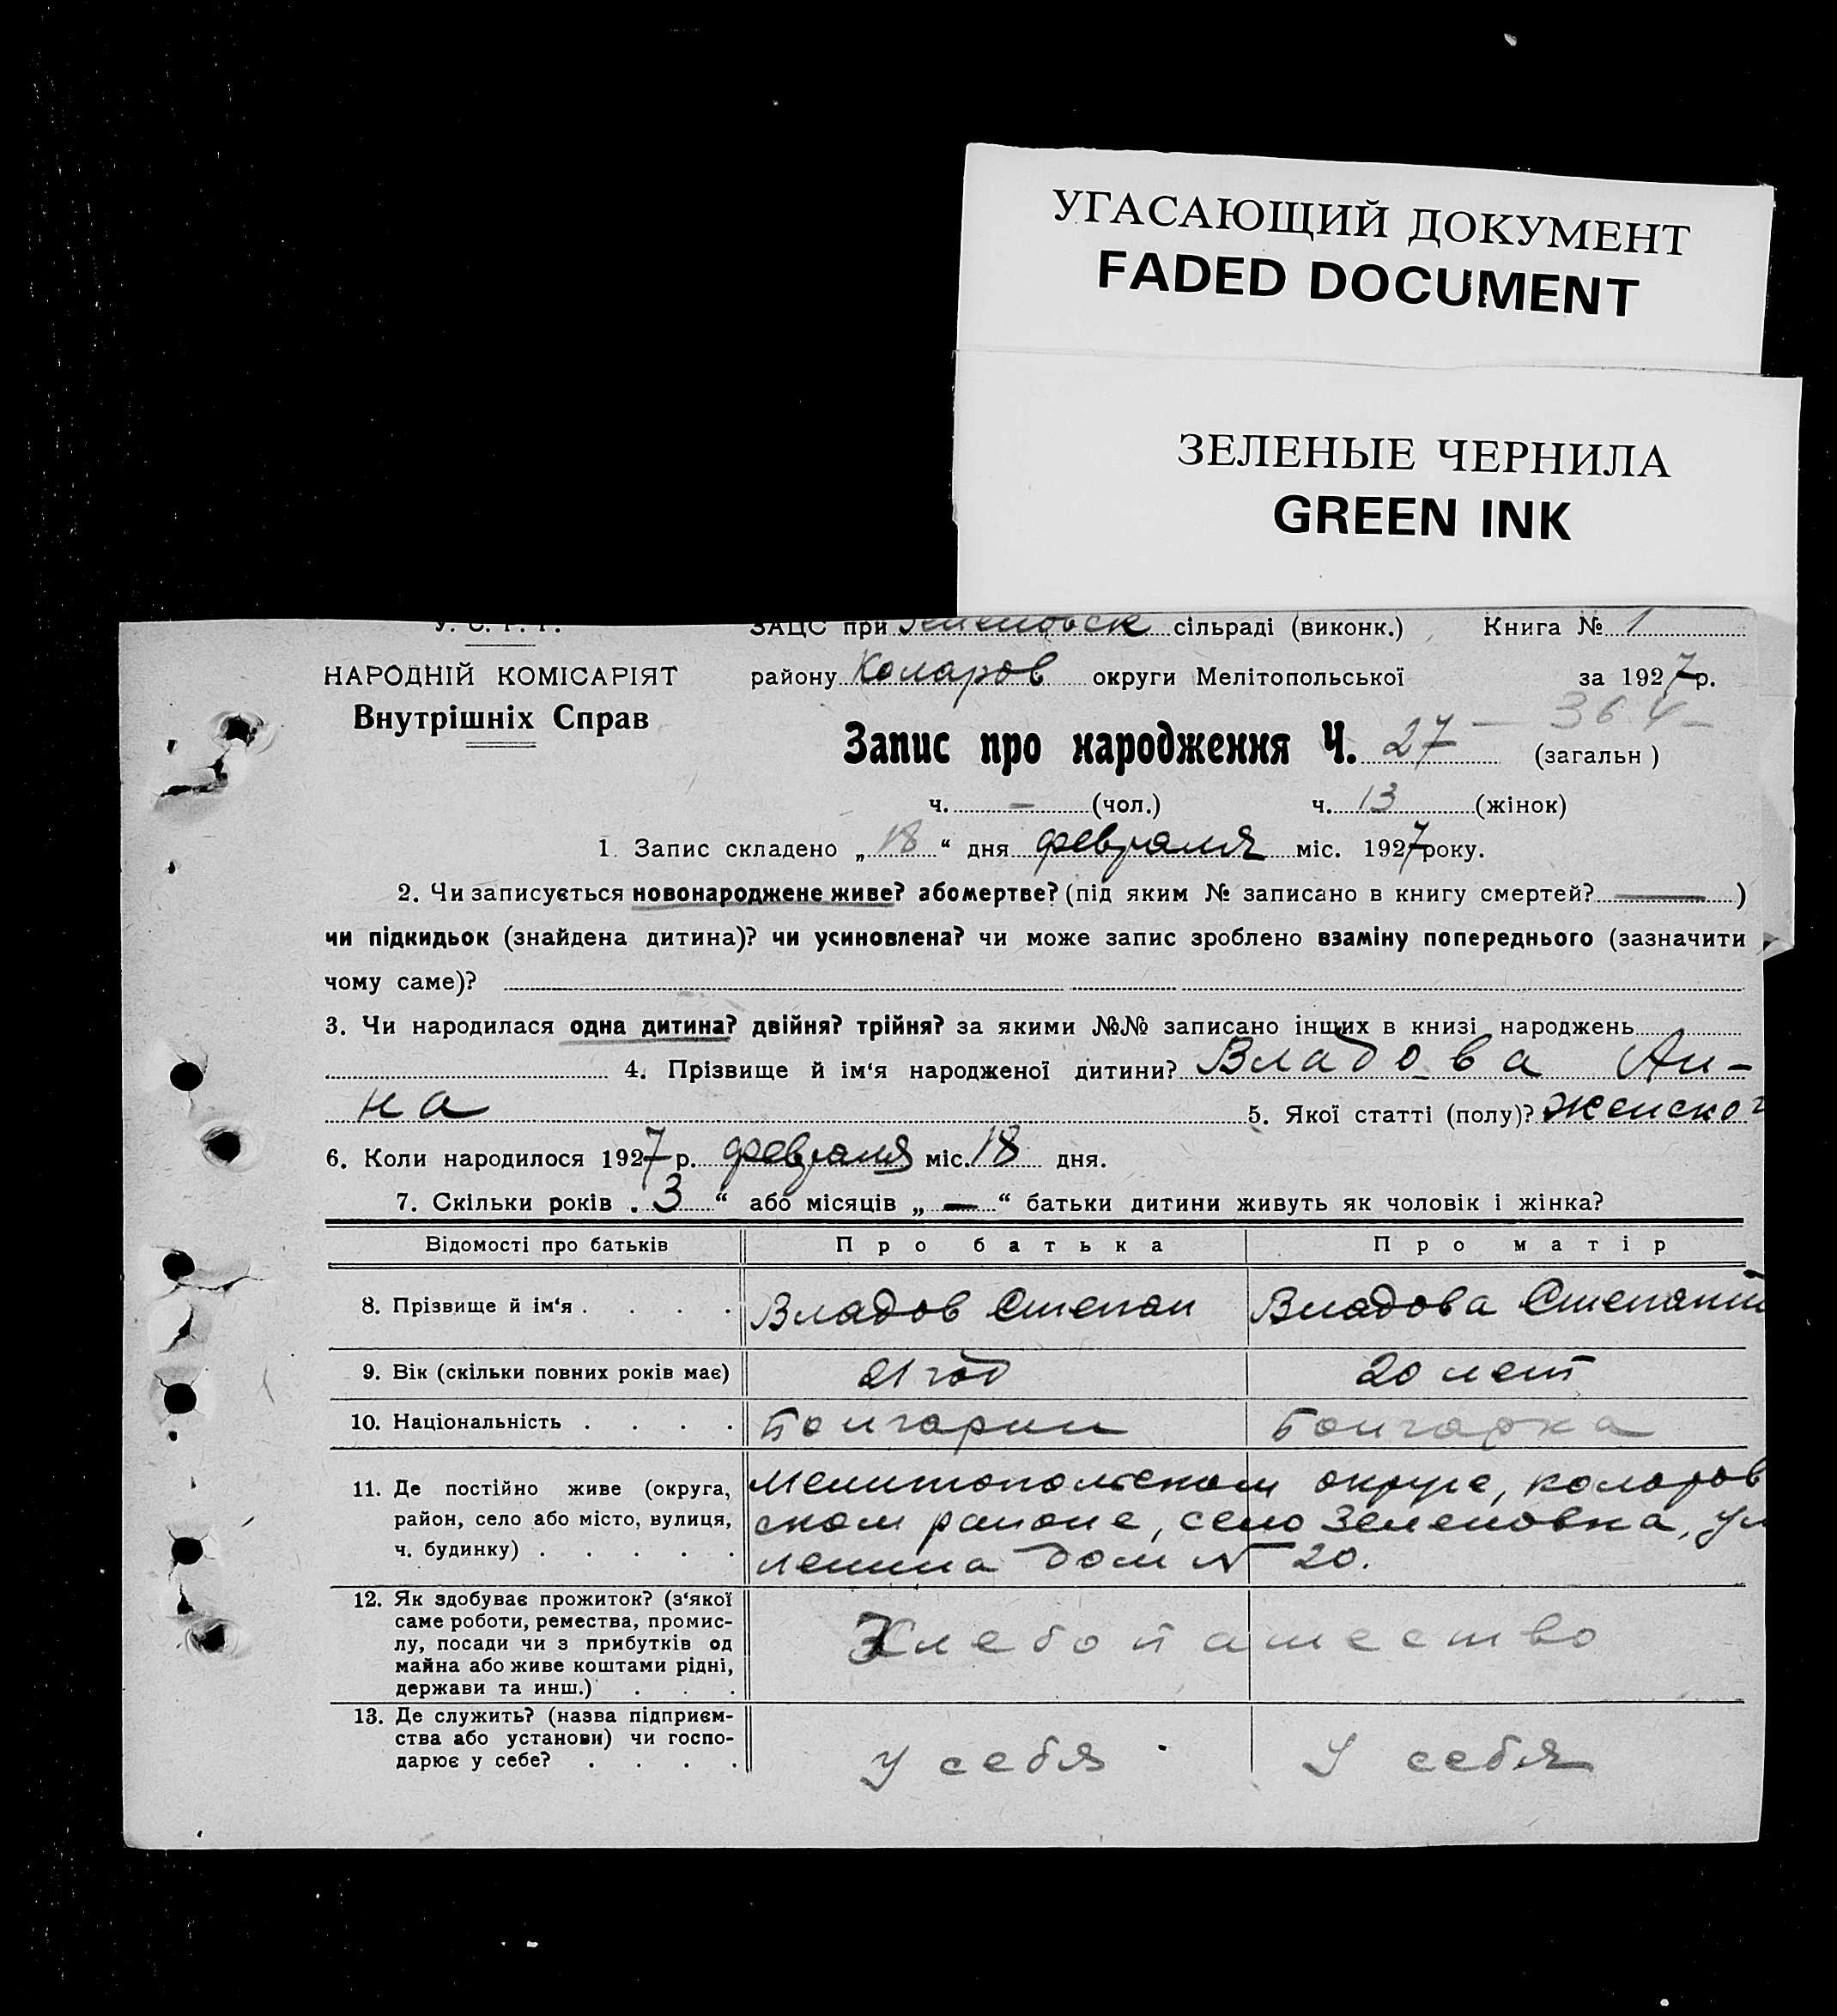 УГАСАЮЩИЙ ДОКУМЕНТ
FADED DOCUMENT
ЗЕЛЕНЫЕ ЧЕРНИЛА
GREEN INK
У. С. Р. Р. ЗАЦС при Зеленовск сільраді (виконк.) Книга № 1
НАРОДНІЙ КОМІСАРІЯТ району Коларов округи Мелітопольської за 1927 р.
Внутрішніх Справ
Запис про народження Ч. 27 — 364 —
(загальн)
ч. — (чол.) ч. 13 (жінок)
1. Запис складено „18“ дня февраля міс. 1927 року.
2. Чи записується новонароджене живе? або мертве? (під яким № записано в книгу смертей? — )
чи підкидьок (знайдена дитина)? чи усиновлена? чи може запис зроблено взаміну попереднього (зазначити
чому саме)?
3. Чи народилася одна дитина? двійня? трійня? за якими №№ записано інших в книзі народжень
4. Прізвище й ім‘я народженої дитини? Владова Ан-
на 5. Якої статті (полу)? женског
6. Коли народилося 1927 р. февраля міс. 18 дня.
7. Скільки років „3“ або місяців „—“ батьки дитини живуть як чоловік і жінка?
Відомості про батьків Про батька Про матір
8. Прізвище й ім‘я . . . . Владов Степан Владова
9. Вік (скільки повних років має) 21 год 20 лет
10. Національність . . . . Болгарин Болгарка
11. Де постійно живе (округа, Мелитопольском округе, коларов
район, село або місто, вулиця, ском районе, село Зеленовка, ул
ч. будинку) . . . . . Ленина дом № 20.
12. Як здобуває прожиток? (з‘якої
саме роботи, ремества, промис-
лу, посади чи з прибутків од Хлебопашество
майна або живе коштами рідні,
держави та инш.) . . .
13. Де служить? (назва підприєм-
ства або установи) чи госпо-
дарює у себе? . . . . У себя У себя